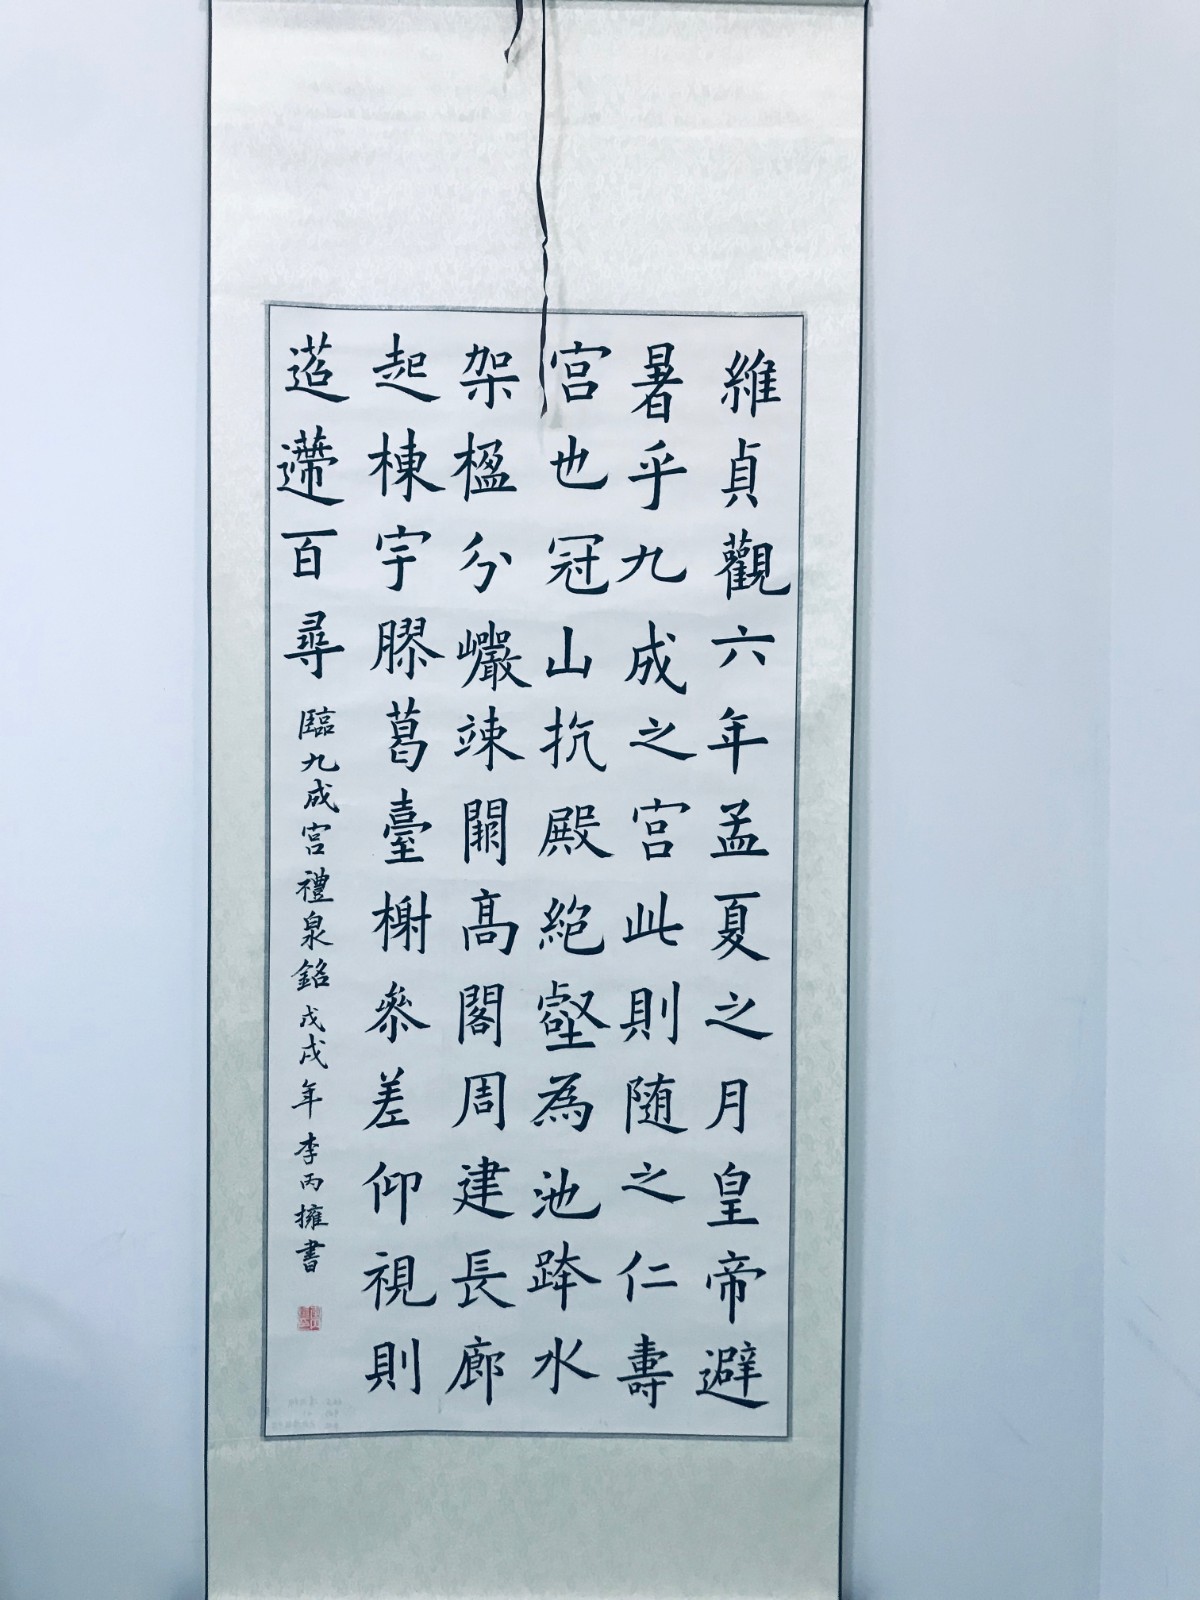 維貞觀六年孟夏之月皇帝避
暑乎九成之宮此則随之仁壽
宮也冠山抗殿絶壑為池跨水
架楹分巗竦闕高閣周建長廊
起棟宇膠葛臺榭叅差仰視則
迢遰百尋
臨九成宮禮泉銘戊戌年李丙擁書